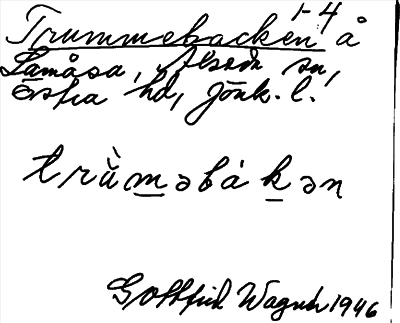 1-4
Trummebacken å
Lamåsa, Alseda sn,
Östra hd, Jönk. l.
trùm̲əbák̲ən
Gottfrid Wagnh 1946